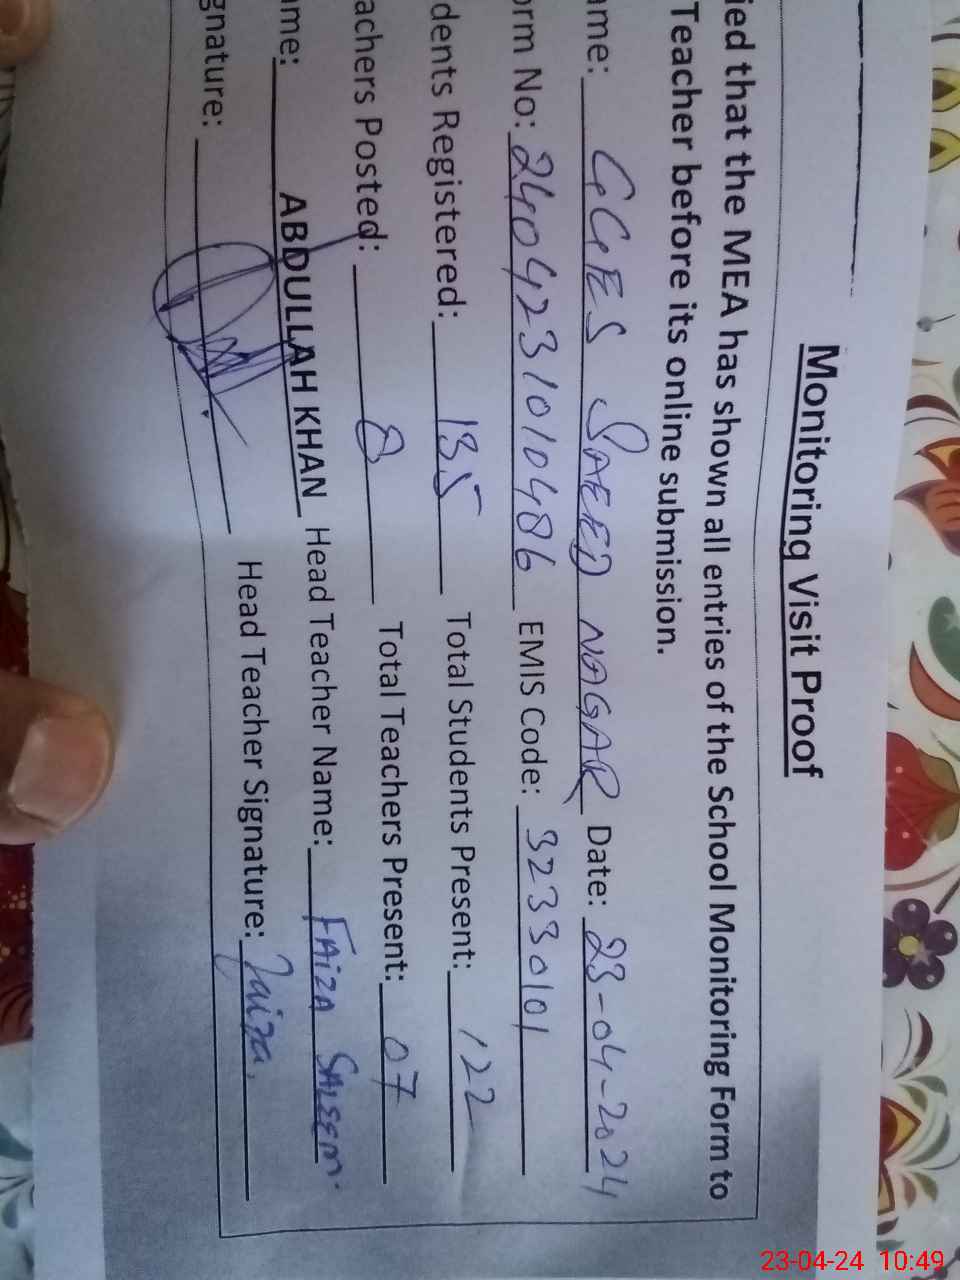 Monitoring Visit Proof
ied that the MEA has shown all entries of the School Monitoring Form to
Teacher before its online submission.
ame: GGES SAEED NAGAR Date: 23-04-2024
orm No: 240423101010486 EMIS Code: 32330101
dents Registered: 135 Total Students Present: 122
achers Posted: 8 Total Teachers Present: 07
ame: ABDULLAH KHAN Head Teacher Name: FAIZA SALEEM.
gnature: Head Teacher Signature: Faiza,
23-04-24 10:49